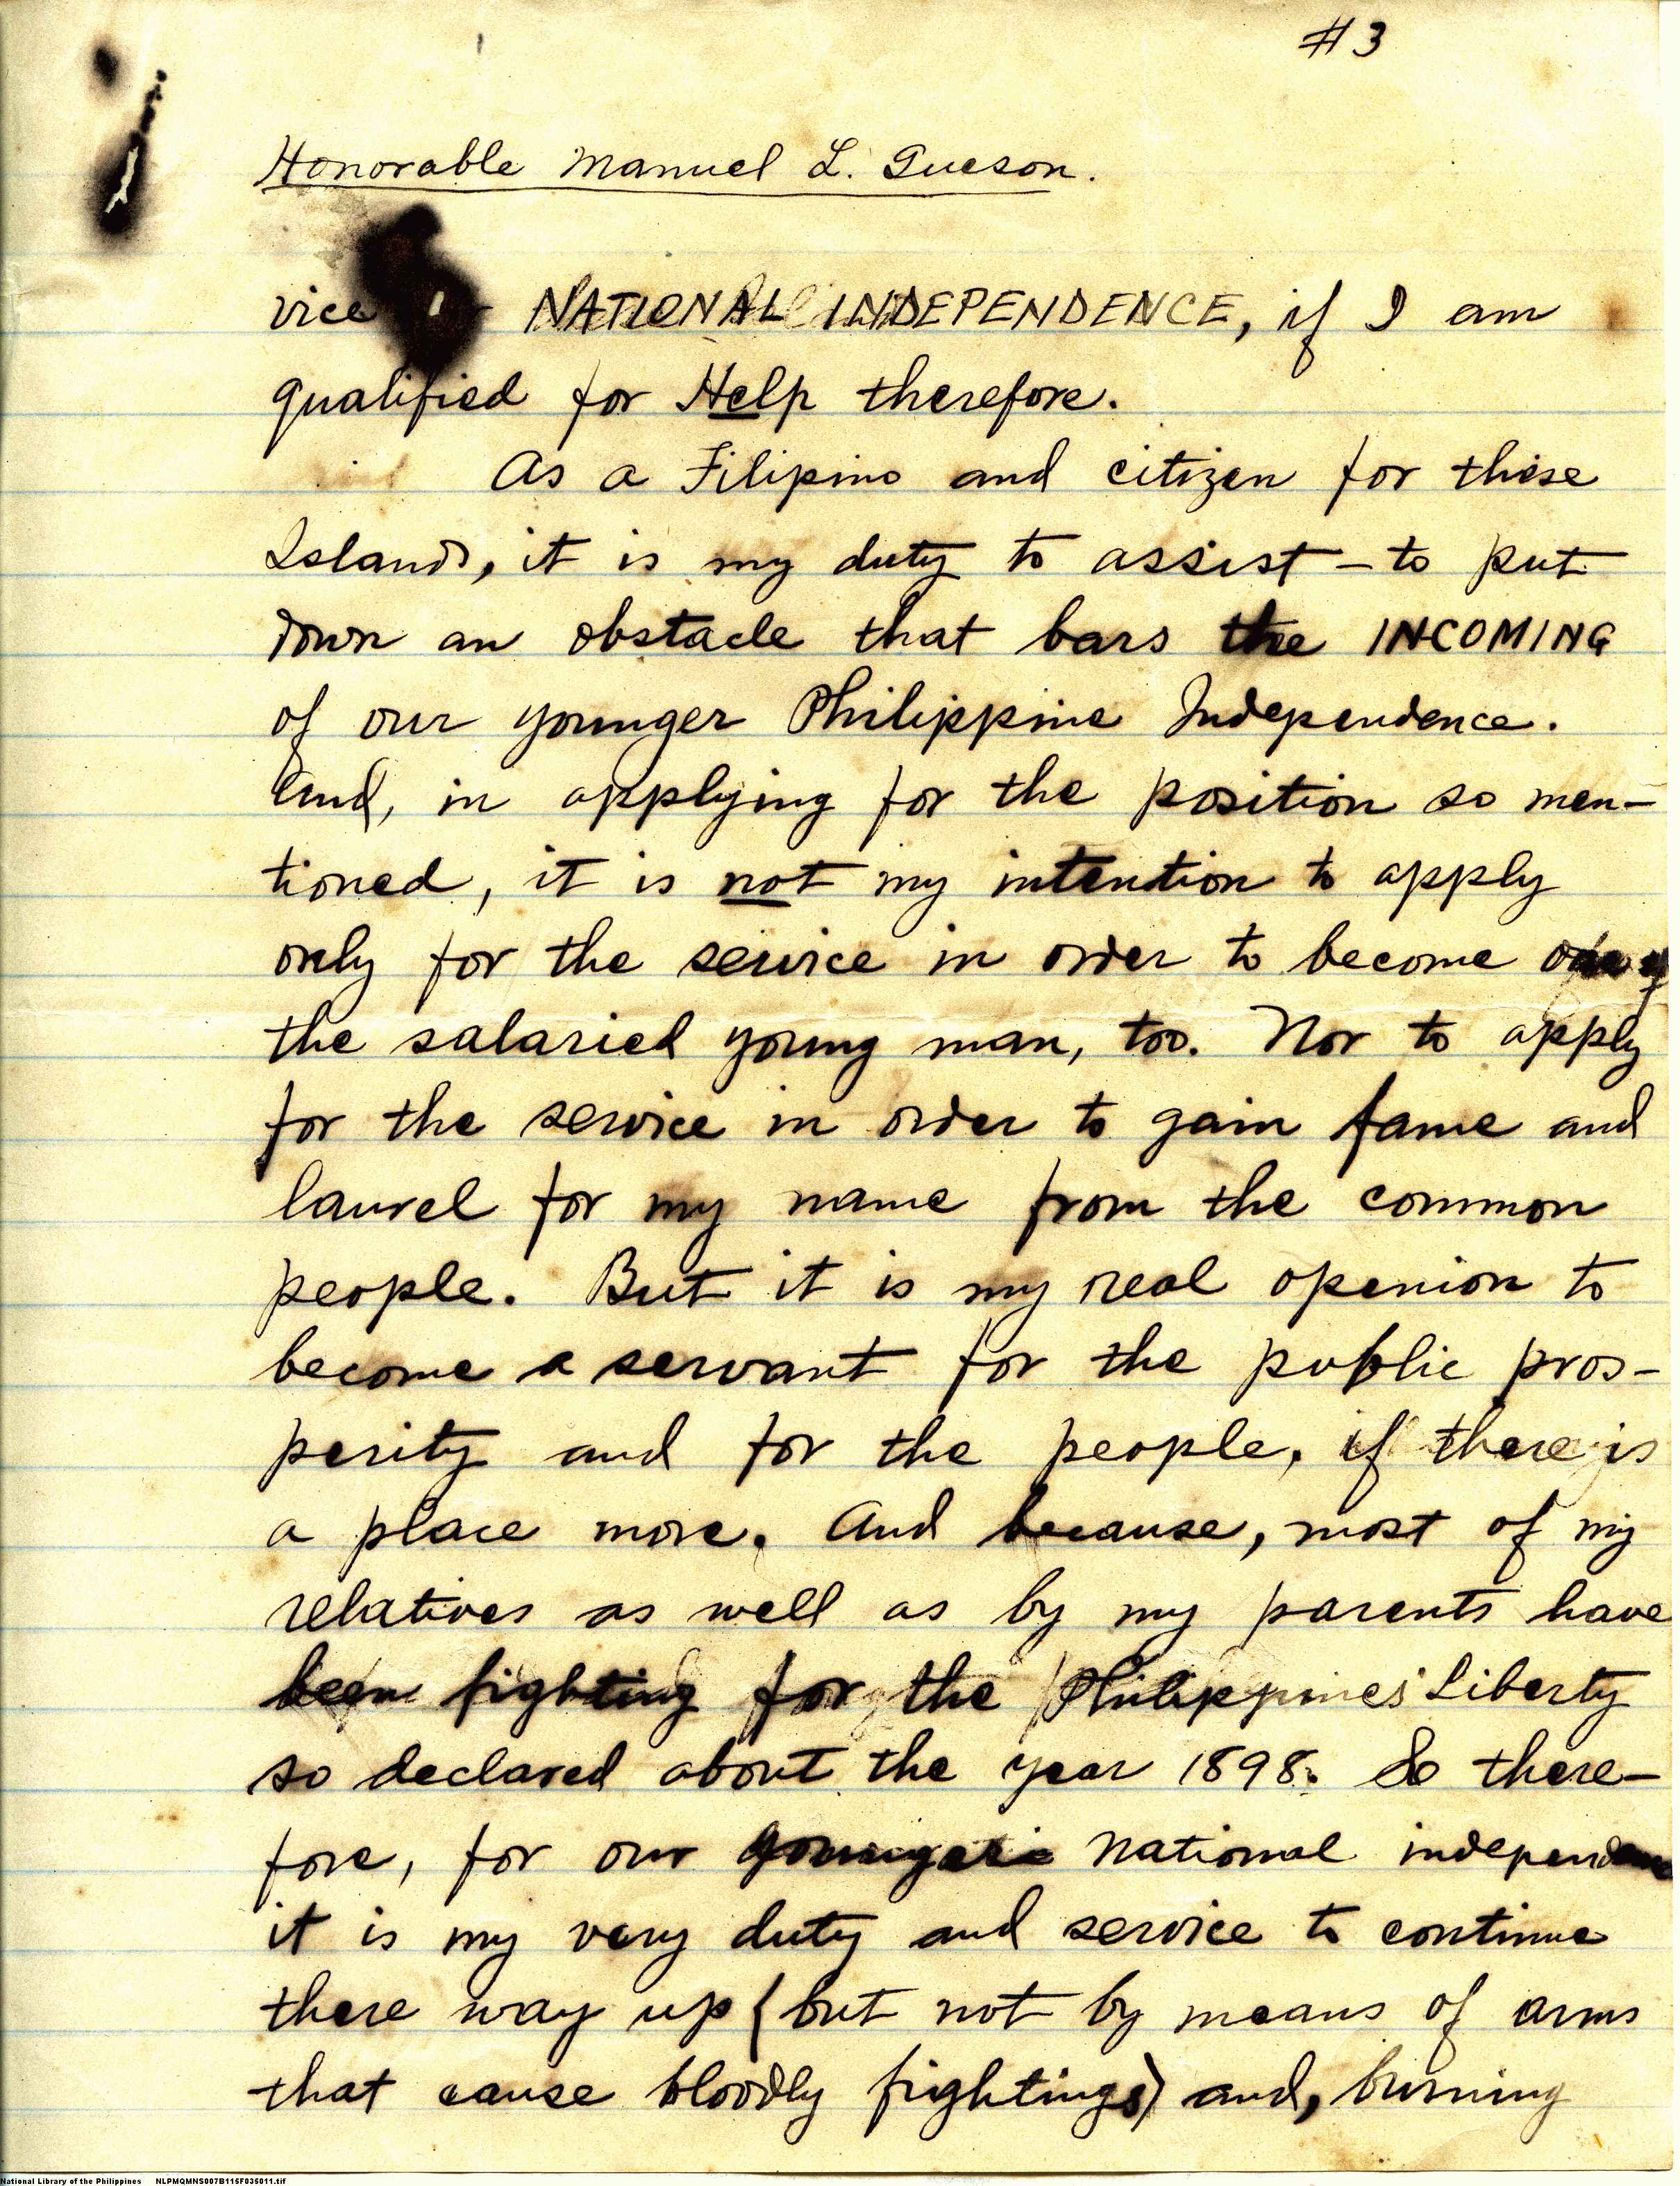 #3
Honorable Manuel L. Queson.
vice NATIONAL INDEPENDENCE, if I am
qualified for Help therefore.
As a Filipino and citizen for these
Islands, it is my duty to assist – to put
down an obstacle that bars the INCOMING
of our younger Philippine Independence.
And, in applying for the position so men-
tioned, it is not my intention to apply
only for the service in order to become one of
the salaried young man, too. Nor to apply
for the service in order to gain fame and
laurel for my name from the common
people. But it is my real openion to
become a servant for the public pros-
perity and for the people, if there is
a place more. And because, most of my
relatives as well as by my parents have
been fighting for the Philippines' Liberty
so declared about the year 1898. So there-
fore, for our National
it is my very duty and service to continue
there way up (but not by means of arms
that cause bloodly fightings) and, burning
National Library of the Philippines NLPMQMNS007B115F035011.tif